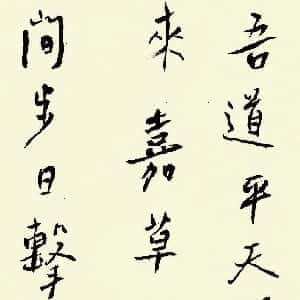 吾道平天
來嘉草
間步日擊